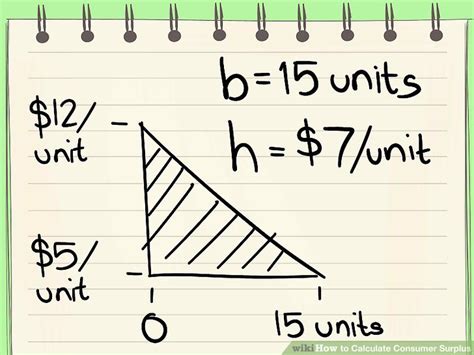 b=15 units
$12/
unit
h = $7/unit
$5/
unit
0
15 units
wikiHow to Calculate Consumer Surplus